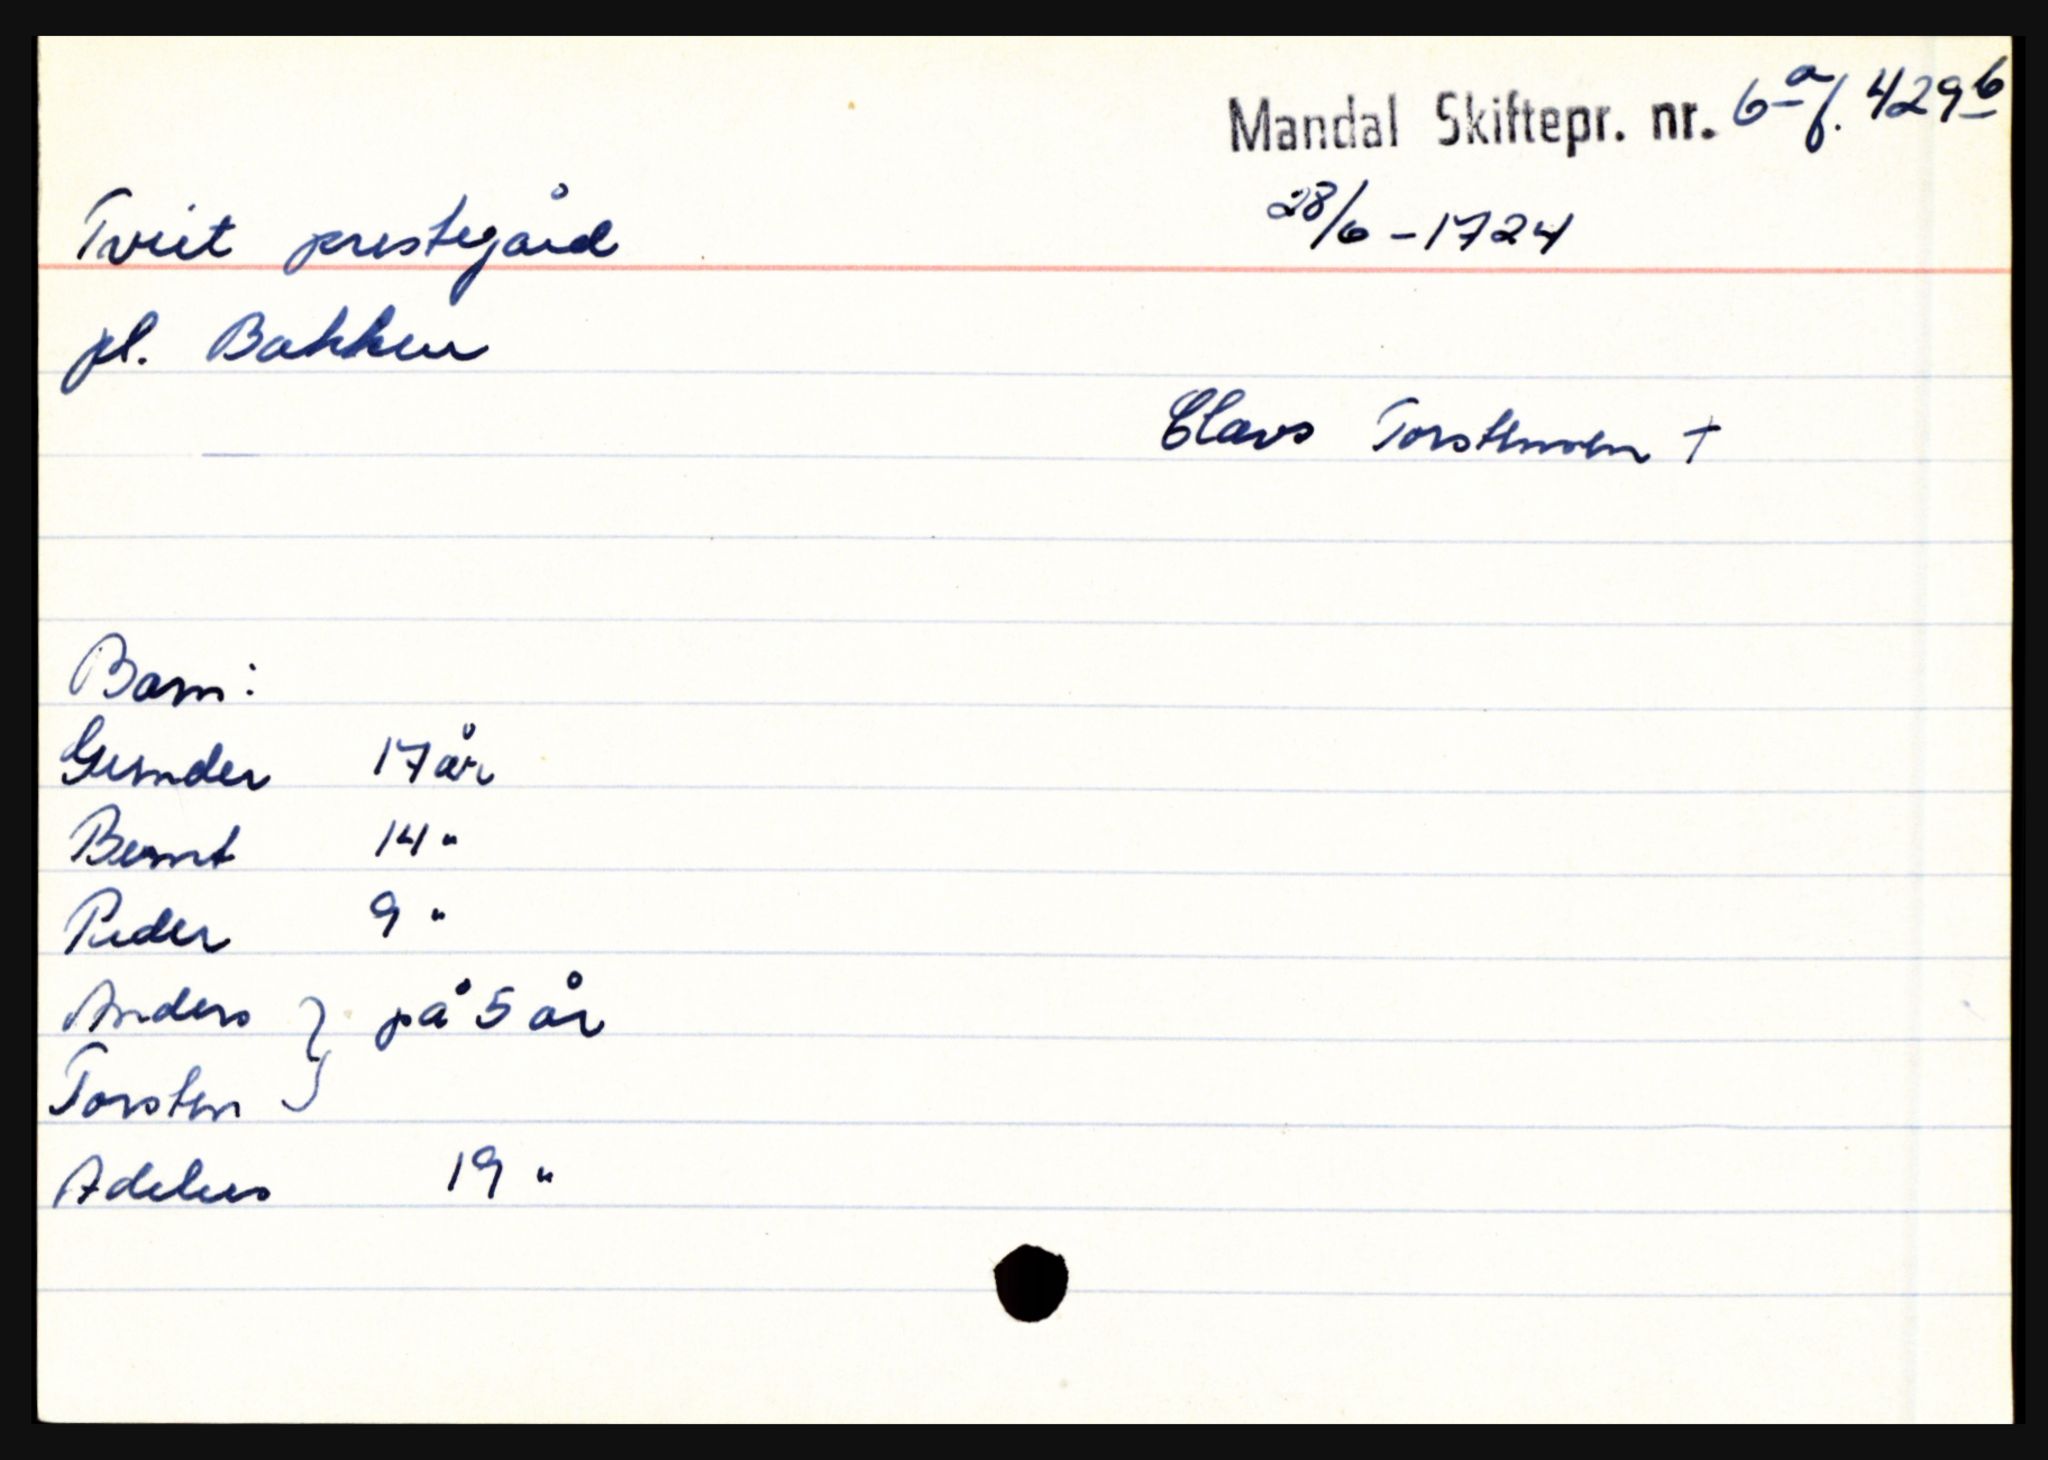 Mandal Skiftepr. nr. 6a f. 429b
28/6 - 1724
Tveit prestegård
pl. Bakken
Claus Torstensen +
Barn:
Gunder 17 år
Bernt 14 "
Peder 9 "
Anders } på 5 år
Torsten
Adelus 19 "